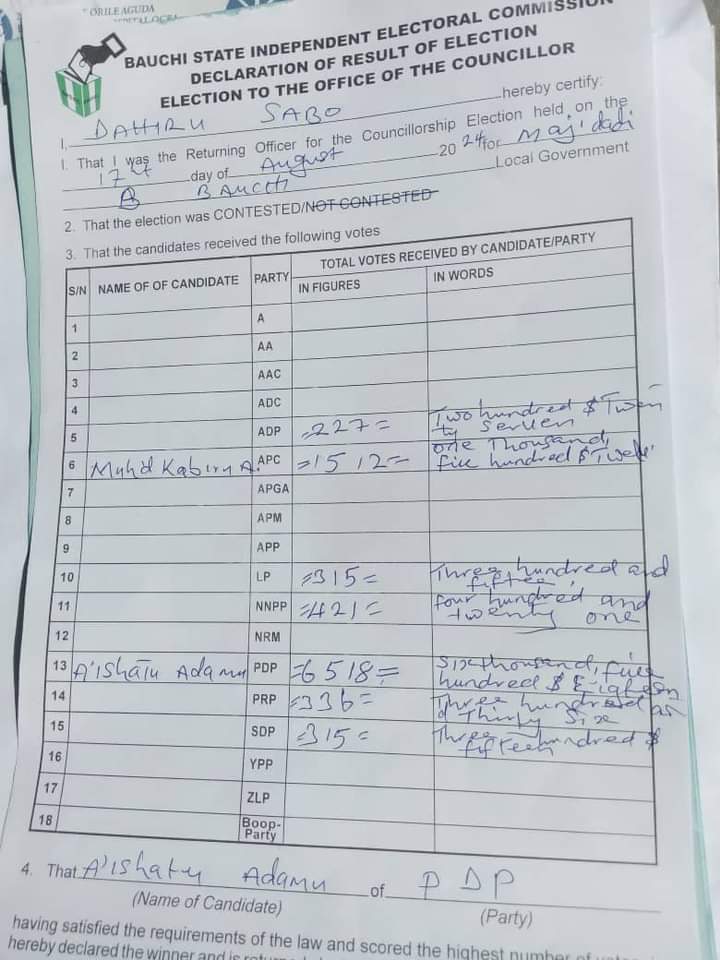 ORILE AGUDA
BAUCHI STATE INDEPENDENT ELECTORAL COMMISSION
DECLARATION OF RESULT OF ELECTION
ELECTION TO THE OFFICE OF THE COUNCILLOR
I, DAHIRU SABO hereby certify:
I. That I was the Returning Officer for the Councillorship Election held on the
17th day of August 2024 for Maji dadi
B BAUCHI Local Government
2. That the election was CONTESTED/NOT CONTESTED
3. That the candidates received the following votes
S/N NAME OF OF CANDIDATE PARTY TOTAL VOTES RECEIVED BY CANDIDATE/PARTY
IN FIGURES IN WORDS
1 A
2 AA
3 AAC
4 ADC
5 ADP =227= Two hundred $ Twen
ty Serven
6 Muhd Kabiru A. APC =1512= one Thousand,
five hundred $ Twelve
7 APGA
8 APM
9 APP
10 LP =315= Three hundred and
fifteen
11 NNPP =421= four hundred and
twenty one
12 NRM
13 A'ishatu Adamu PDP =6518= Six thousand, five
hundred $ Eighteen
14 PRP =336= Three hundred an
d Thirty Six
15 SDP =315= Three hundred $
fifteen
16 YPP
17 ZLP
18 Boop-
Party
4. That A'ishatu Adamu of PDP
(Name of Candidate) (Party)
having satisfied the requirements of the law and scored the highest number of
hereby declared the winner and is